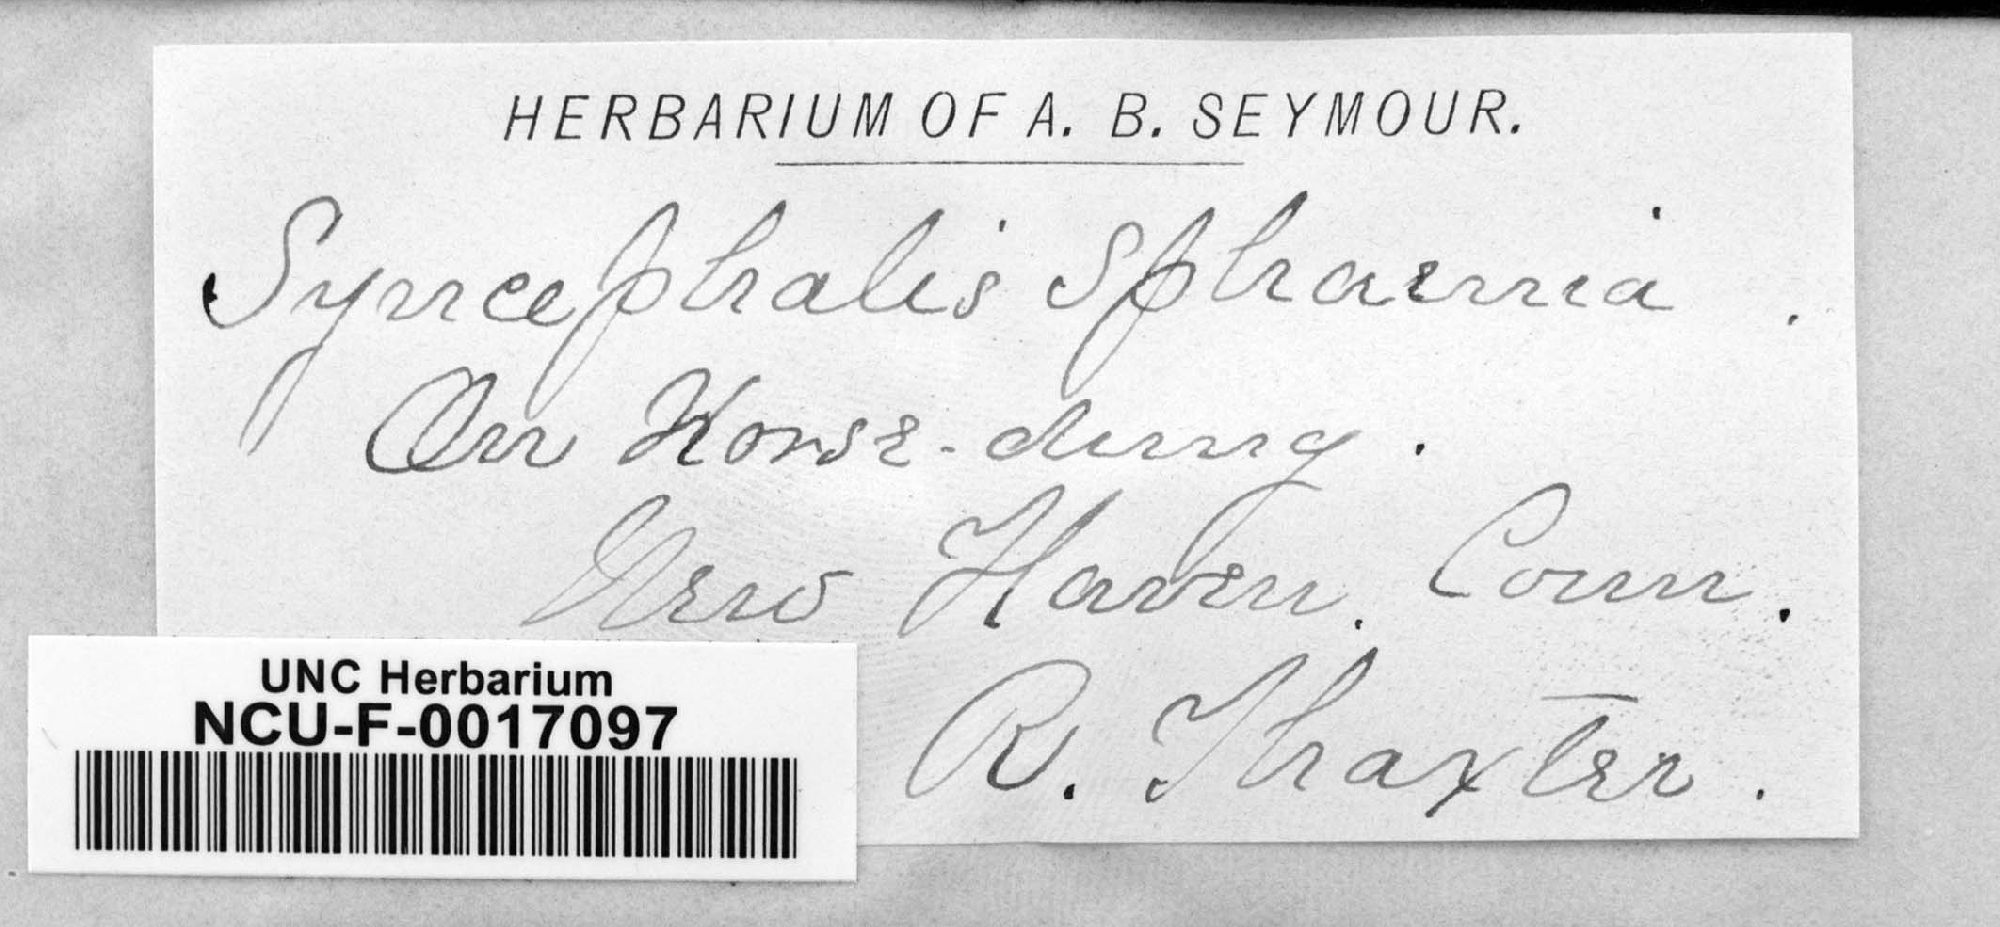 HERBARIUM OF A. B. SEYMOUR.
Syncephalis Sphaerica.
On Horse-dung.
New Haven. Conn.
R. Thaxter.
UNC Herbarium
NCU-F-0017097